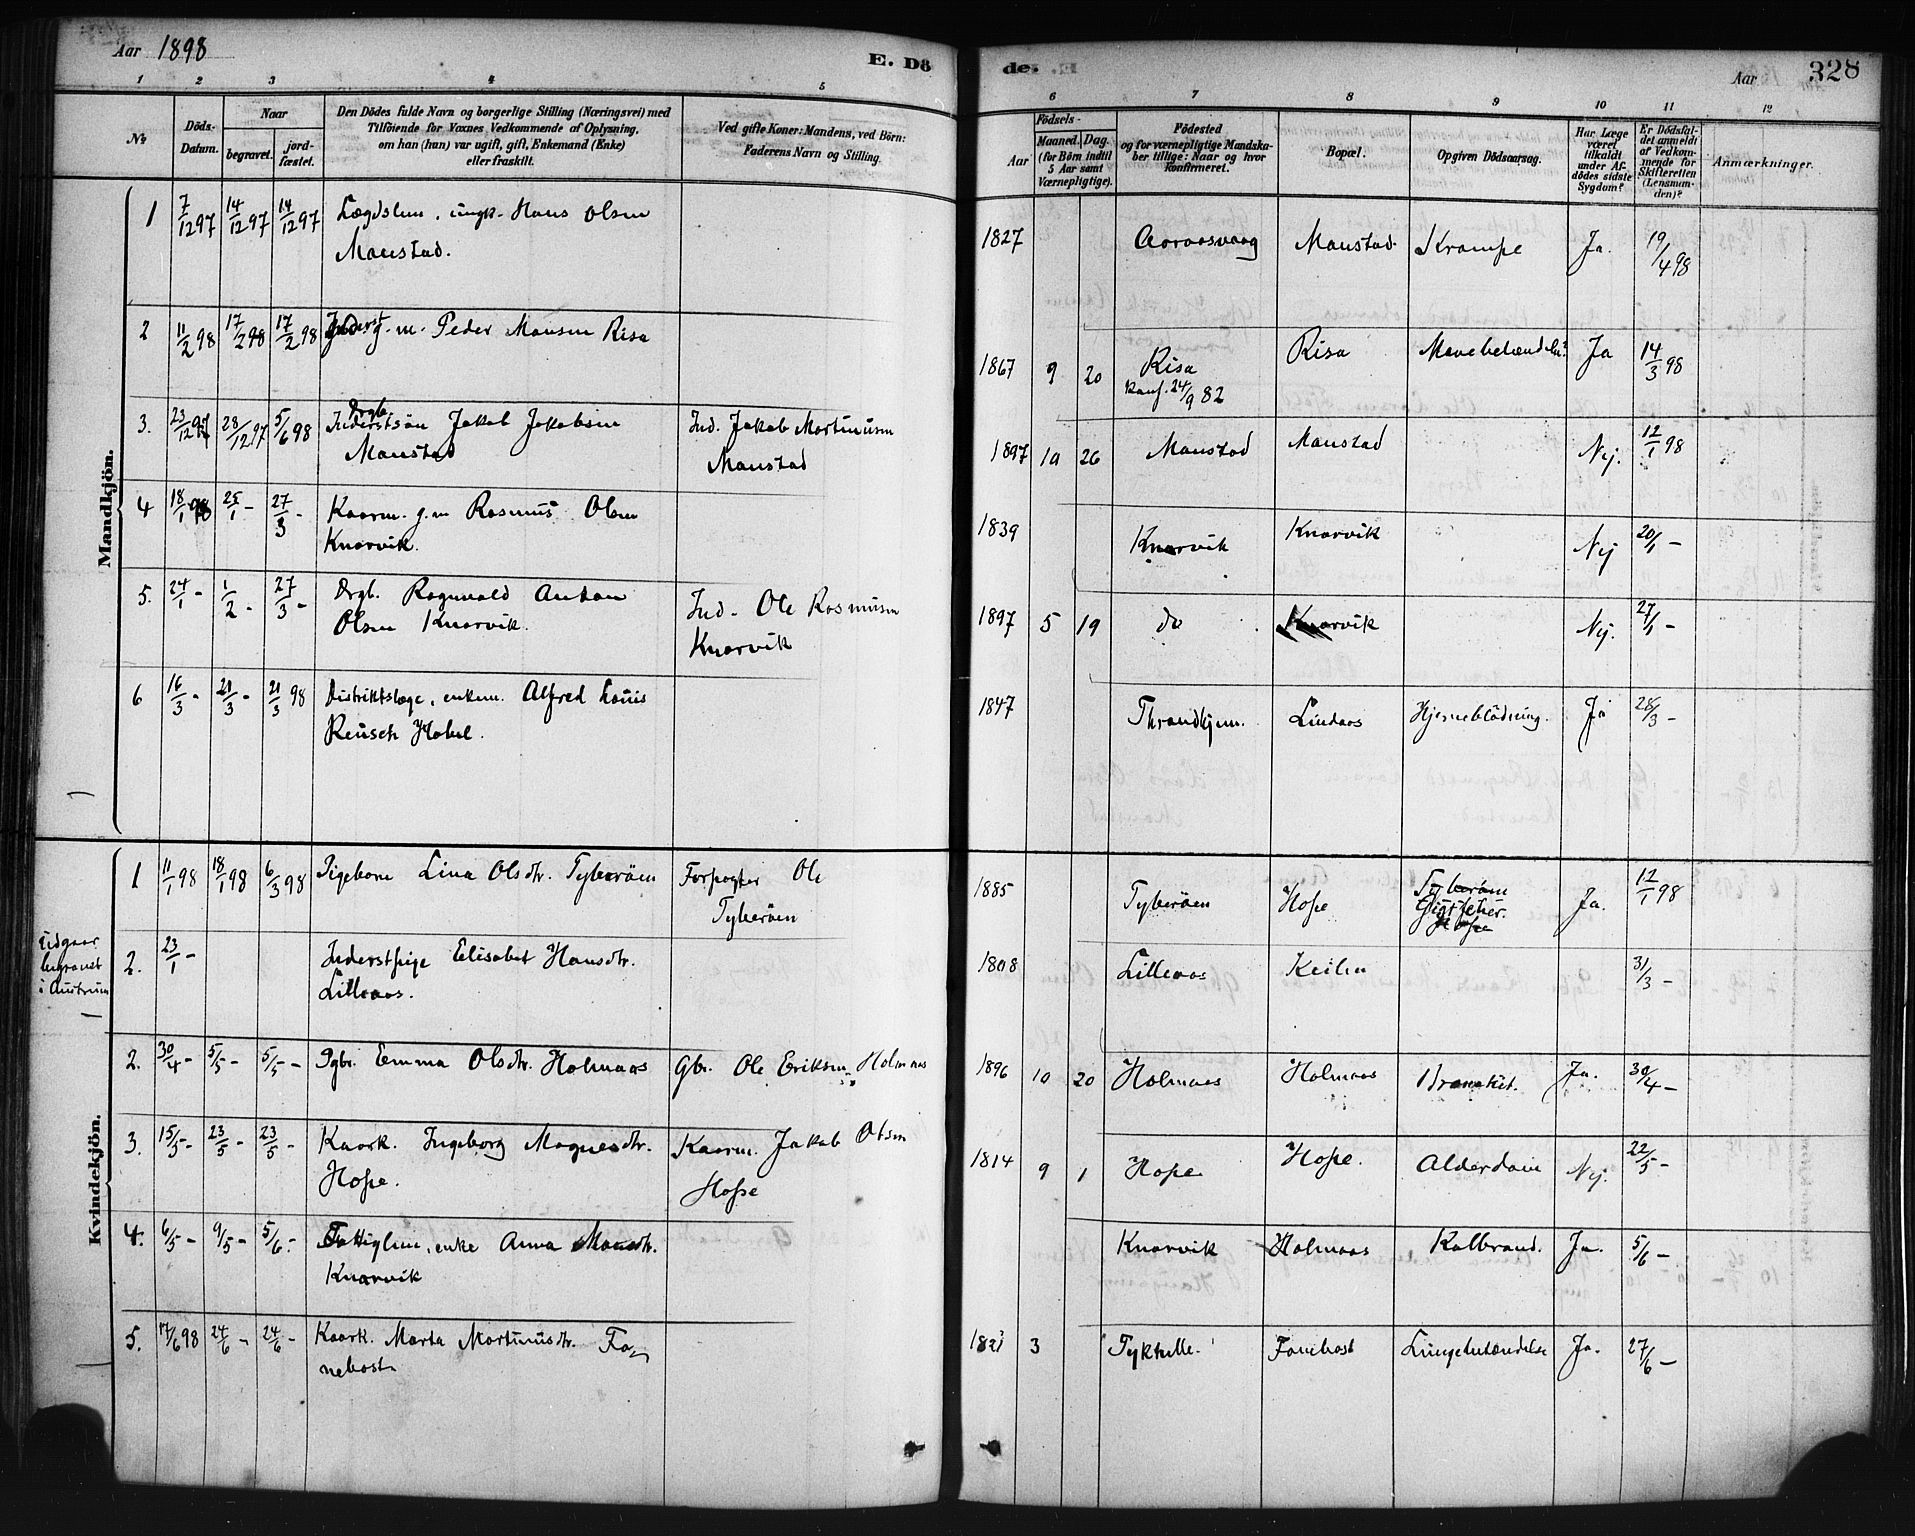 Aar 1898
E. Dö
de.
Aar
328
1 2 3 4 5 6 7 8 9 10 11 12
No
Döds-
Datum.
Naar
begravet.
jord-
fæstet.
Den Dödes fulde Navn og borgerlige Stilling (Næringsvei) med
Tilföiende for Voxnes Vedkommende af Oplysning,
om han (hun) var ugift, gift, Enkemand (Enke)
eller fraskilt.
Ved gifte Koner: Mandens, ved Börn:
Faderens Navn og Stilling.
Födsels-
Aar
Maaned. Dag.
(for Börn indtil
5 Aar samt
Værnepligtige).
Födested
og for værnepligtige Mandska-
ber tillige: Naar og hvor
konfirmeret.
Bopæl.
Opgiven Dödsaarsag.
Har Læge
været
tilkaldt
under Af-
dödes sidste
Sygdom?
Er Dödsfal-
det anmeldt
af Vedkom-
mende for
Skifteretten
(Lensman-
den)?
Anmærkninger.
Mandkjön.
1 7/12 97 14/12 97 14/12 97 Lægdslem, ungk. Hans Olsen
Manstad.
1827 Aaraasvaag Manstad Krampe Ja. 19/4 98
2 11/2 98 17/2 98 17/2 98 Inderst g.m. Peder Monsen Risa
1867 9 20 Risa
Konf. 24/9 82
Risa Mavebetændelse? Ja 14/3 98
3. 23/12 97 28/12 97 5/6 98 Drgb.
Inderstsön Jakob Jakobsen
Manstad
Ind. Jakob Martinusen
Manstad
1897 10 26 Manstad Manstad Nej. 12/1 98
4 18/1 98 25/1 - 27/3 - Kaarm. g.m Rasmus Olsen
Knarvik.
1839 Knarvik Knarvik Nej 20/1 -
5. 24/1 - 1/2 - 27/3 - Drgb. Ragnvald Anton
Olsen Knarvik.
Ind. Ole Rasmusen
Knarvik
1897 5 19 do Knarvik Nej. 27/1 -
6 16/3 - 21/3 - 21/3 98 Distriktslæge, enkem. Alfred Louis
Reusch Hobel.
1847 Throndhjem. Lindaas Hjerneblödning. Ja 28/3 -
Kvindekjön.
1 11/1 98 18/1 98 6/3 98 Pigebarn Lina Olsdtr. Tyberöen
Forpagter Ole
Tyberöen
1885 Tyberöen Hope Tyberöen
Gigtfeber.
Hope
Ja. 12/1 98
Udgaar
begravet
i Austrum
2. 23/1 - Inderstpige Elisabet Hansdtr.
Lilleaas.
1808 Lilleaas Keilen 31/3 -
2. 30/4 - 5/5 - 5/5 - Pgb. Emma Olsdtr. Holmaas Gbr. Ole Eriksen Holmaas
1896 10 20 Holmaas Holmaas Bronchit. Ja. 30/4 -
3. 15/5 - 23/5 - 23/5 - Kaark. Ingeborg Magnesdtr.
Hope.
Kaarm. Jakob Olsen
Hope
1814 9 1 Hope Hope. Alderdom Nej. 22/5 -
4. 6/5 - 9/5 - 5/6 - Fattiglem, enke Anna Monsdtr.
Knarvik
Knarvik Holmaas Kolbrand. Ja. 5/6 -
5. 17/6 98 24/6 - 24/6 - Kaark. Marta Martinusdtr. Fo-
nebost
1823 3 Tyktelle. Fonebost Lungebetændelse Ja. 27/6 -